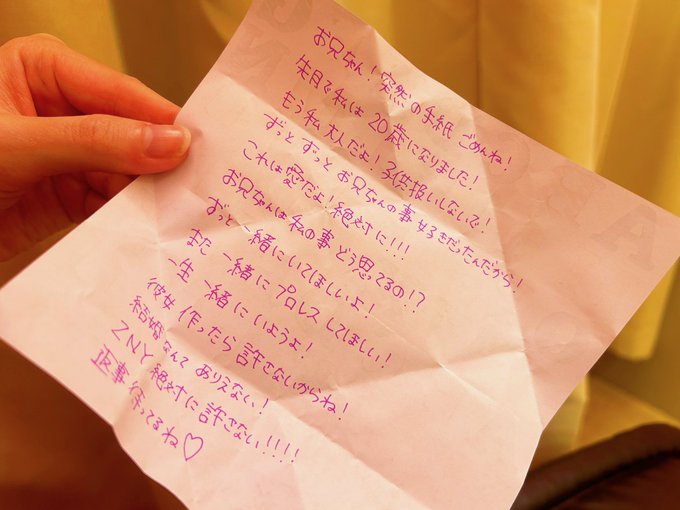 お兄ちゃん!突然の手紙ごめんね!
先月で私は20歳になりました!
もう私大人だよ!子供扱いしないで!
ずっとずっとお兄ちゃんの事好きだったんだから!
これは愛だよ!絶対に!!!
お兄ちゃんは私の事どう思てるの!?
ずっと一緒にいてほしいよ!
また一緒にプロレスしてほしい!
一生一緒にいようよ!
彼女作ったら許さないからね!
結婚なんてありえない!
ZNY絶対に許さない!!!!
返事待ってるね♡